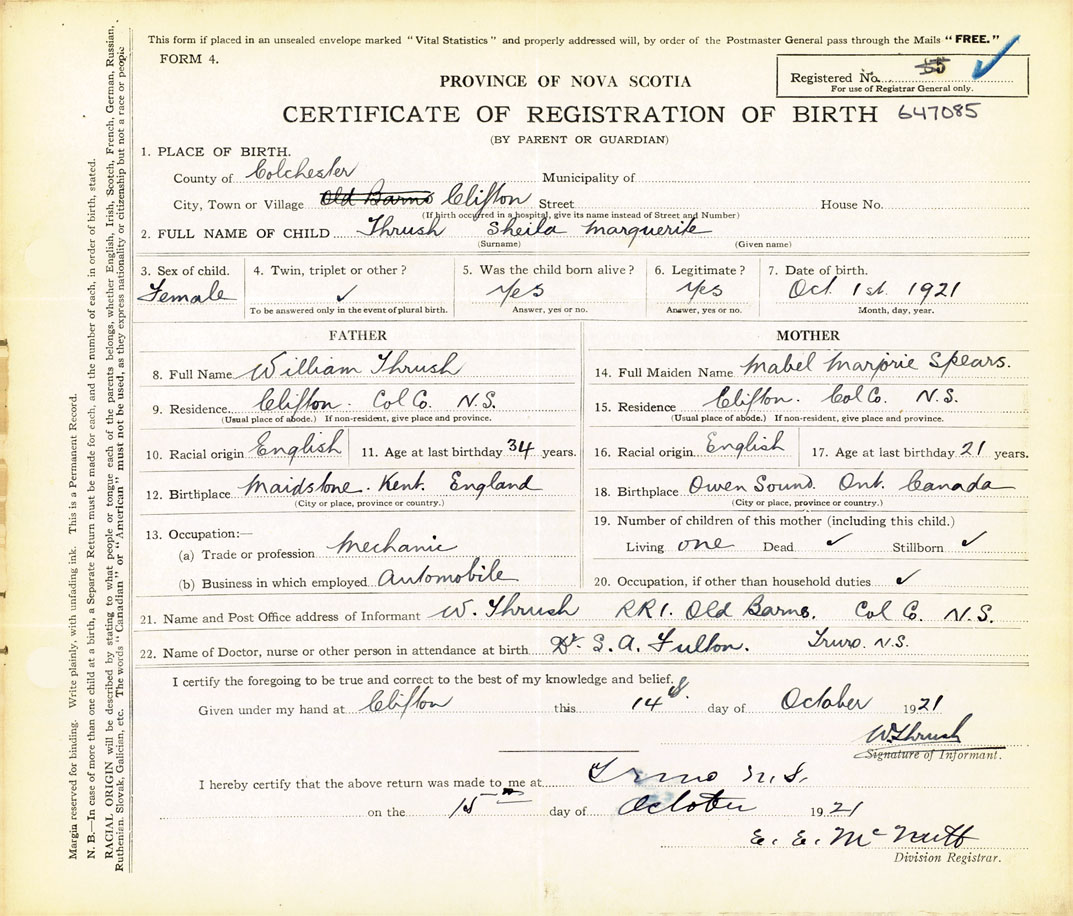 This form if placed in an unsealed envelope marked "Vital Statistics" and properly addressed will, by order of the Postmaster General pass through the Mails "FREE."
FORM 4.
Registered No.
For use of Registrar General only.
PROVINCE OF NOVA SCOTIA
CERTIFICATE OF REGISTRATION OF BIRTH 647085
(BY PARENT OR GUARDIAN)
1. PLACE OF BIRTH.
County of Colchester Municipality of
City, Town or Village Old Barns Clifton Street House No.
(If birth occurred in a hospital, give its name instead of Street and Number)
2. FULL NAME OF CHILD Thrush Sheila Marguerite
(Surname) (Given name)
3. Sex of child. 4. Twin, triplet or other? 5. Was the child born alive? 6. Legitimate? 7. Date of birth.
Female ✓ Yes Yes Oct 1st 1921
To be answered only in the event of plural birth. Answer, yes or no. Answer, yes or no. Month, day, year.
FATHER
8. Full Name William Thrush
9. Residence Clifton. Col Co. N.S.
(Usual place of abode.) If non-resident, give place and province.
10. Racial origin English 11. Age at last birthday 34 years.
12. Birthplace Maidstone. Kent. England
(City or place, province or country.)
13. Occupation:—
(a) Trade or profession Mechanic
(b) Business in which employed Automobile
MOTHER
14. Full Maiden Name Mabel Marjorie Spears.
15. Residence Clifton. Col Co. N.S.
(Usual place of abode.) If non-resident, give place and province.
16. Racial origin English 17. Age at last birthday 21 years.
18. Birthplace Owen Sound. Ont. Canada
(City or place, province or country.)
19. Number of children of this mother (including this child.)
Living one Dead ✓ Stillborn ✓
20. Occupation, if other than household duties ✓
21. Name and Post Office address of Informant W. Thrush RR1. Old Barns. Col Co. N.S.
22. Name of Doctor, nurse or other person in attendance at birth Dr. S.A. Fulton. Truro. N.S.
I certify the foregoing to be true and correct to the best of my knowledge and belief.
Given under my hand at Clifton this 14th day of October 1921
W Thrush
Signature of Informant.
I hereby certify that the above return was made to me at Truro N.S.
on the 15th day of October 1921
E. E. McNutt
Division Registrar.
Margin reserved for binding. Write plainly, with unfading ink. This is a Permanent Record.
N. B.—In case of more than one child at a birth, a Separate Return must be made for each, and the number of each, in order of birth, stated.
RACIAL ORIGIN will be described by stating to what people or tongue each of the parents belongs, whether English, Irish, Scotch, French, German, Russian,
Ruthenian, Slovak, Galician, etc. The words "Canadian" or "American" must not be used, as they express nationality or citizenship but not a race or people